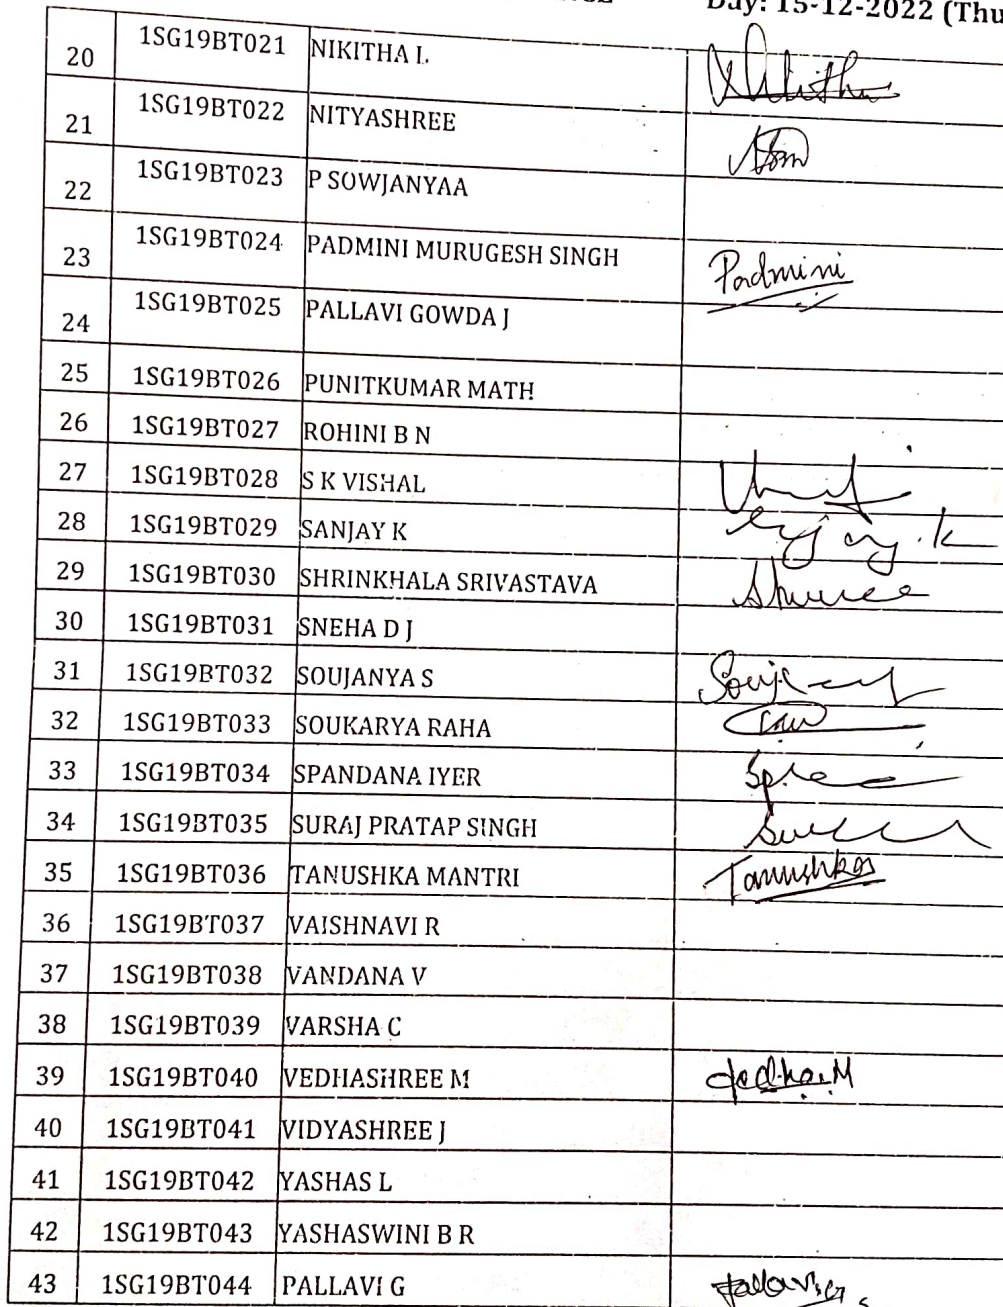 Day: 15-12-2022 (Thu
20 1SG19BT021 NIKITHA L
21 1SG19BT022 NITYASHREE
22 1SG19BT023 P SOWJANYAA
23 1SG19BT024 PADMINI MURUGESH SINGH Padmini
24 1SG19BT025 PALLAVI GOWDA J
25 1SG19BT026 PUNITKUMAR MATH
26 1SG19BT027 ROHINI B N
27 1SG19BT028 S K VISHAL
28 1SG19BT029 SANJAY K
29 1SG19BT030 SHRINKHALA SRIVASTAVA
30 1SG19BT031 SNEHA D J
31 1SG19BT032 SOUJANYA S
32 1SG19BT033 SOUKARYA RAHA
33 1SG19BT034 SPANDANA IYER
34 1SG19BT035 SURAJ PRATAP SINGH
35 1SG19BT036 TANUSHKA MANTRI Tanushka
36 1SG19BT037 VAISHNAVI R
37 1SG19BT038 VANDANA V
38 1SG19BT039 VARSHA C
39 1SG19BT040 VEDHASHREE M
40 1SG19BT041 VIDYASHREE J
41 1SG19BT042 YASHAS L
42 1SG19BT043 YASHASWINI B R
43 1SG19BT044 PALLAVI G